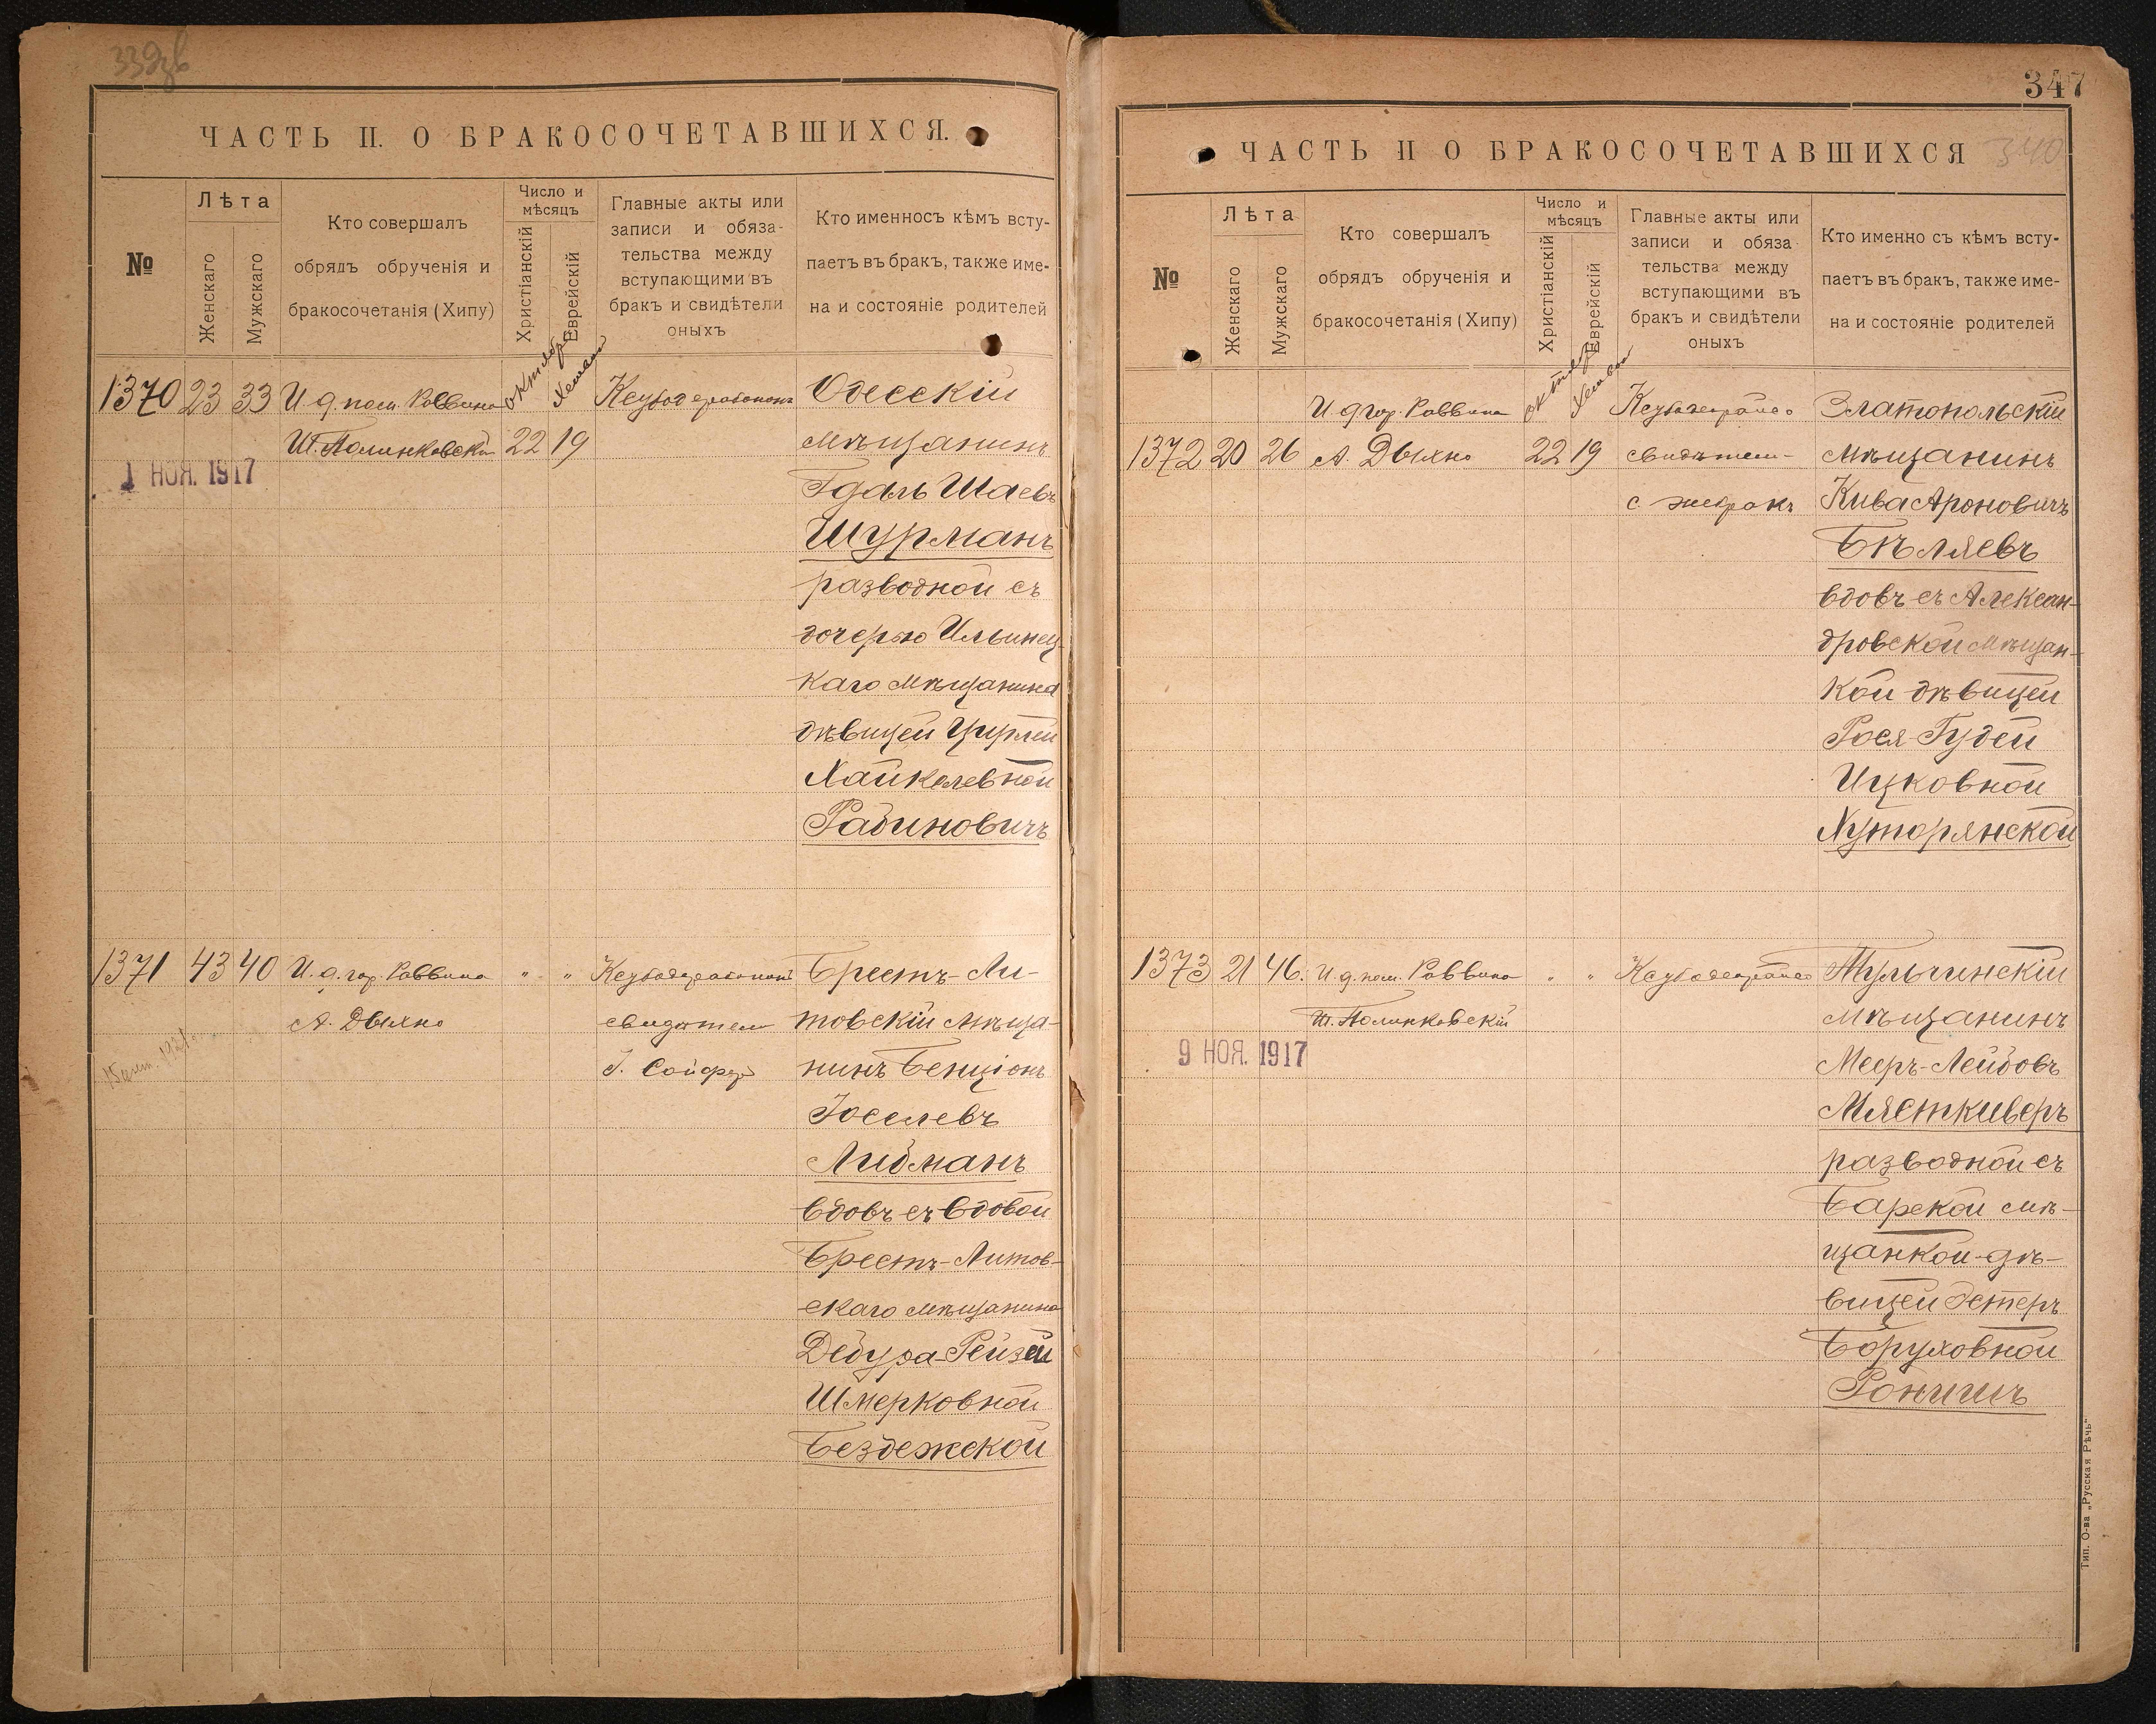 ЧАСТЬ II. О БРАКОСОЧЕТАВШИХСЯ.
№
Лѣта
Женскаго
Мужскаго
Кто совершалъ
обрядъ обрученія и
бракосочетанія (Хипу)
Число и
мѣсяцъ
Христіанскій
Еврейскій
Главные акты или
записи и обяза-
тельства между
вступающими въ
бракъ и свидѣтели
оныхъ
Кто именносъ кѣмъ всту-
паетъ въ бракъ, также име-
на и состояніе родителей
1370 23 33 И. д. пом. Раввина
Ш. Полинковскій 22 19
1 НОЯ. 1917
Одесскій
мѣщанинъ
Гдаль Шаевъ
Шурманъ
разводной съ
дочерью Ильинец-
каго мѣщанина
дѣвицей Цирлей
Хайкелевной
Рабиновичъ
1371 43 40 И. д. гор. Раввина " "
А. Дыхно
свидѣтели
Брестъ-Ли-
товскій мѣща-
нинъ Бенціонъ
Іоселевъ
Либманъ
вдовъ съ вдовой
Брестъ-Литов-
скаго мѣщанина
Двейра-Рейзей
Шмерковной
Бездежской
347
340
ЧАСТЬ II О БРАКОСОЧЕТАВШИХСЯ
№
Лѣта
Женскаго
Мужскаго
Кто совершалъ
обрядъ обрученія и
бракосочетанія (Хипу)
Число и
мѣсяцъ
Христіанскій
Еврейскій
Главные акты или
записи и обяза
тельства между
вступающими въ
бракъ и свидѣтели
оныхъ
Кто именно съ кѣмъ всту-
паетъ въ бракъ, также име-
на и состояніе родителей
И. д. гор. Раввина
1372 20 26 А. Дыхно 22 19 свидѣтели-
Златопольскій
мѣщанинъ
Кива Ароновичъ
Бѣляевъ
вдовъ съ Алексан-
дровской мѣщан-
кой дѣвицей
Рося-Гудей
Ицковной
Хуторянской
1373 21 46. И. д. пом. Раввина " "
Ш. Полинковскій
9 НОЯ. 1917
Тульчинскій
мѣщанинъ
Мееръ-Лейбовъ
Мясткиверъ
разводной съ
Барской мѣ-
щанкой-дѣ-
вицей Эстеръ
Боруховной
Рончикъ
Тип. О-ва „Русская Рѣчь"